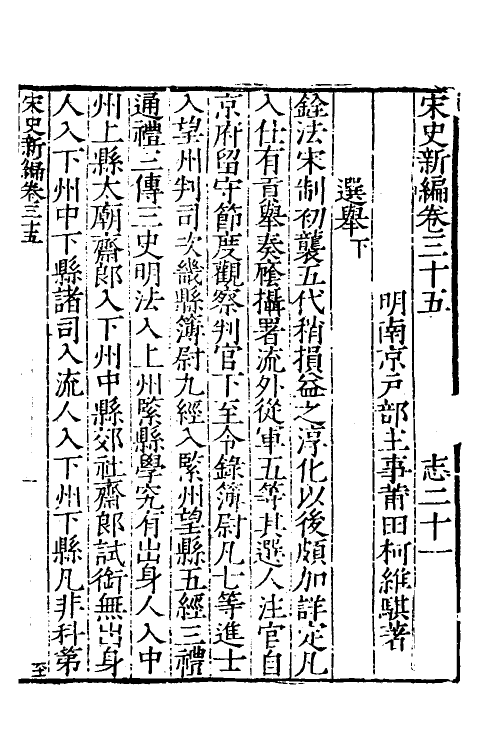 宋史新編卷三十五　志二十一
明南京戸部主事莆田柯維騏著
選舉下
銓法宋制初襲五代稍損益之淳化以後頗加詳定凡
入仕有貢舉奏廕攝署流外從軍五等其選人注官自
京府留守節度觀察判官下至令錄簿尉凡七等進士
入望州判司次畿縣簿尉九經入緊州望縣五經三禮
通禮三傳三史明法入上州緊縣學究有出身人入中
州上縣太廟齋郎入下州中縣郊社齋郎試銜無出身
人入下州中下縣諸司入流人入下州下縣凡非科第
宋史新編卷三十五　一